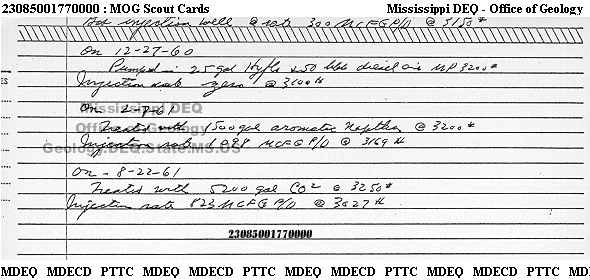 23085001770000 : MOG Scout Cards Mississippi DEQ - Office of Geology
injection well @ rate 300 MCFGP/D @ 3150#
On 12-27-60
Pumped in 25 gal Hyflo + 50 bbls diesel oil MP 3200#
Injection rate zero @ 3600#
Mississippi DEQ
On 2-9-61
Office of Geology
Treated with 1500 gal aromatic Naptha @ 3200#
Geology.DEQ.State.MS.US
Injection rate MCFGP/D @ 3169#
On - 8-22-61
Treated with 5200 gal CO2 @ 3250#
Injection rate 823 MCFGP/D @ 3027#
23085001770000
MDEQ MDECD PTTC MDEQ MDECD PTTC MDEQ MDECD PTTC MDEQ MDECD PTTC MDEQ